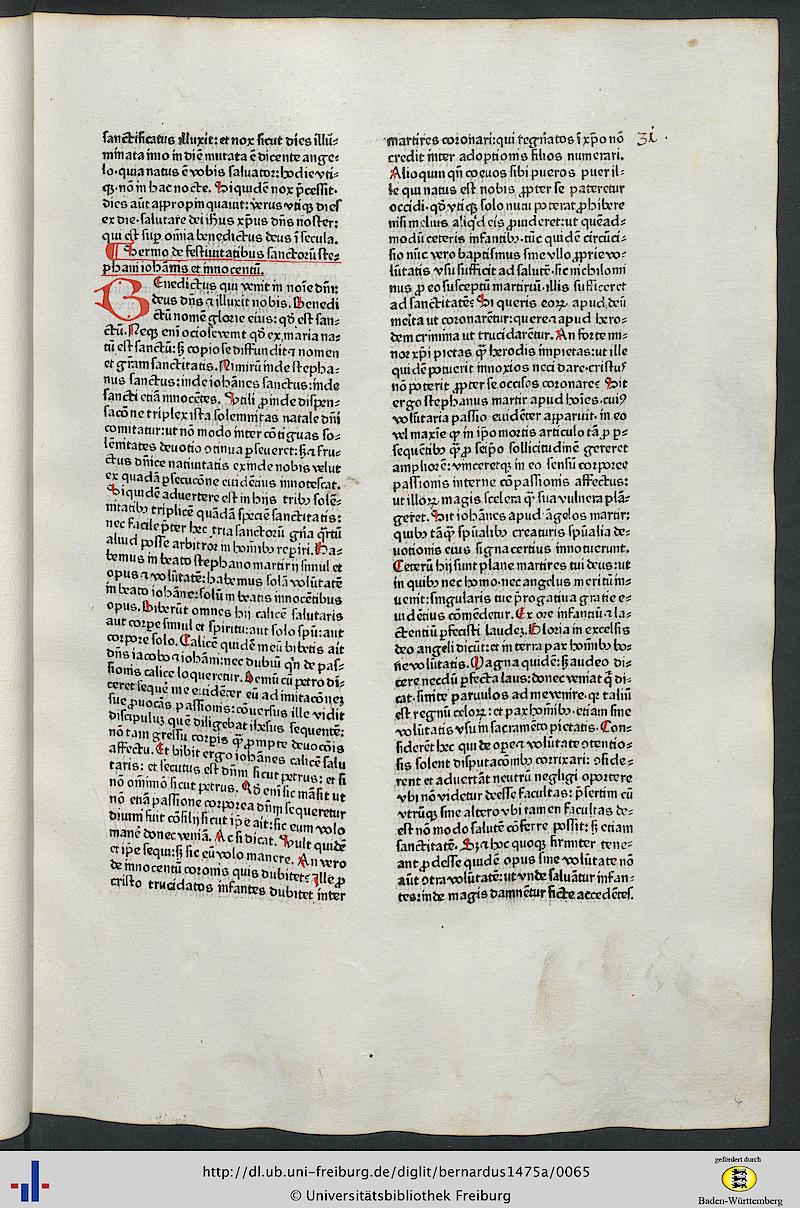 sanctificatus illuxit: et nox sicut dies illū-
minata imo in diē mutata ē dicente ange-
lo. quia natus ē vobis saluator: hodie vti-
qȝ. nō in hac nocte. Siquidē nox p̄cessit.
dies aūt appropinquauit: verus vtiqȝ dies
ex die. salutare dei ihūs xp̄us dn̄s noster:
qui est sup om̄ia benedictus deus ī secula.
Sermo de festiuitatibus sanctorū ste-
phani iohānis et innocentū.
BEnedictus qui venit in noīe dn̄i:
deus dn̄s ⁊ illuxit nobis. Benedi
ctū nomē glorie eius: qd̄ est san-
ctū. Neqȝ eni ociose venit qd̄ ex maria na-
tū est sanctū: sȝ copiose diffundit ⁊ nomen
et grām sanctitatis. Nimirū inde stepha-
nus sanctus: inde iohānes sanctus: inde
sancti etiā innocētes. Vtili proinde dispen-
sacōne triplex ista solemnitas natale dn̄i
comitatur: ut nō modo inter cōtiguas so-
lēnitates deuotio ↄtinua pseueret: sȝ ⁊ fru-
ctus dn̄ice natiuitatis exinde nobis velut
ex quadā psecucōne euidētius innotescat.
Siquidē aduertere est in hijs tribȝ solē-
nitatibȝ triplicē quādā speciē sanctitatis:
nec facile p̄ter hec tria sanctorū gn̄a qrtū
aliud posse arbitror in homībȝ repiri. Ha-
bemus in beato stephano martirij simul et
opus ⁊ volūtatē: habemus solā volūtatē
in beato iohāne: solū in beatis innocētibus
opus. Biberūt omnes hij calicē salutaris
aut corpe simul et spiritu: aut solo spū: aut
corpore solo. Calicē quidē meū bibetis ait
dn̄s iacobo ⁊ iohāni: nec dubiū qn̄ de pas-
sionis calice loqueretur. Demū cū petro di-
ceret sequere me euidēter eū ad imitacōneȝ
sue puocās passionis: cōuersus ille vidit
discipulū quē diligebat ihesus sequentē:
nō tam gressu corpis q̄ prompte deuocōis
affectu. Et bibit ergo iohānes calicē salu
taris: et secutus est dn̄m sicut petrus: et si
nō om̄īmo sicut petrus. Qd̄ eni sic māsit ut
nō etiā passione corporea dn̄m sequeretur
diuini fuit cōsilij sicut ip̄e ait: sic eum volo
manē donec veniā. Ac si dicat. Vult quidē
et ip̄e sequi: sȝ sic eū volo manere. An vero
de innocentū coronis quis dubitet? Ille p
cristo trucidatos infantes dubitet inter
martires coronari: qui regn̄atos ī xp̄o nō
credit inter adoptionis filios numerari.
Alioquin qn̄ coeuos sibi pueros puer il-
le qui natus est nobis propter se pateretur
occidi. qd̄ vtiqȝ solo nutu poterat phibere
nisi melius aliqd eis puideret: ut quēad-
modū ceteris infantibȝ. tūc quidē circūci-
sio nūc vero baptismus sine vllo proprie vo-
lūtatis vsu sufficit ad salutē. sic nichilomi
nus p eo susceptū martiriū illis sufficeret
ad sanctitatē? Si queris eorꝝ apud deū
merita ut coronarētur: quere ⁊ apud hero-
dem crimina ut trucidarētur. An forte mi-
nor xp̄i pietas q̄ herodis impietas: ut ille
quidē potuerit innoxios neci dare. cristus
nō poterit propter se occisos coronare? Sit
ergo stephanus martir apud hoīes. cuiꝰ
volūtaria passio euidēter apparuit. in eo
vel maxīe qȝ in ip̄o mortis articulo tā p p-
sequētibȝ q̄ p seipo sollicitudinē gereret
ampliorē: vinceretqȝ in eo sensū corporee
passionis interne cōpassionis affectus:
ut illorꝝ magis scelera q̄ sua vulnera plā-
geret. Sit iohānes apud āgelos martir:
quibȝ tāqȝ spūalibȝ creaturis spūalia de-
uotionis eius signa certius innotuerunt.
Ceterū hij sunt plane martires tui deus: ut
in quibȝ nec homo. nec angelus meritū in-
uenit: singularis tue progatiua gratie e-
uidētius cōmēdetur. Ex ore infantiū ⁊ la-
ctentiū pfecisti laudeȝ. Gloria in excelsis
deo angeli dicūt: et in terra pax homībȝ bo-
ne volūtatis. Magna quidē: sȝ audeo di-
cere necdū pfecta laus: donec veniat q̄ di-
cat. sinite paruulos ad me venire. qȝ taliū
est regnū celorꝝ: et pax homībȝ. etiam sine
volūtatis vsu in sacramēto pietatis. Con-
siderēt hec qui de ope ⁊ volūtate ↄtentio-
sis solent disputacōnibȝ corrixari: ↄside-
rent et aduertāt neutrū negligi oportere
vbi nō videtur deesse facultas: p̄sertim cū
vtrūqȝ sine altero vbi tamen facultas de-
est nō modo salutē cōferre possit: sȝ etiam
sanctitatē. Sȝ ⁊ hoc quoqȝ firmiter tene-
ant prodesse quidē opus sine volūtate nō
aūt ↄtra volūtatē: ut vnde saluātur infan-
tes: inde magis damnētur ficte accedētes.
31.
http://dl.ub.uni-freiburg.de/diglit/bernardus1475a/0065
© Universitätsbibliothek Freiburg
gefördert durch
Baden-Württemberg